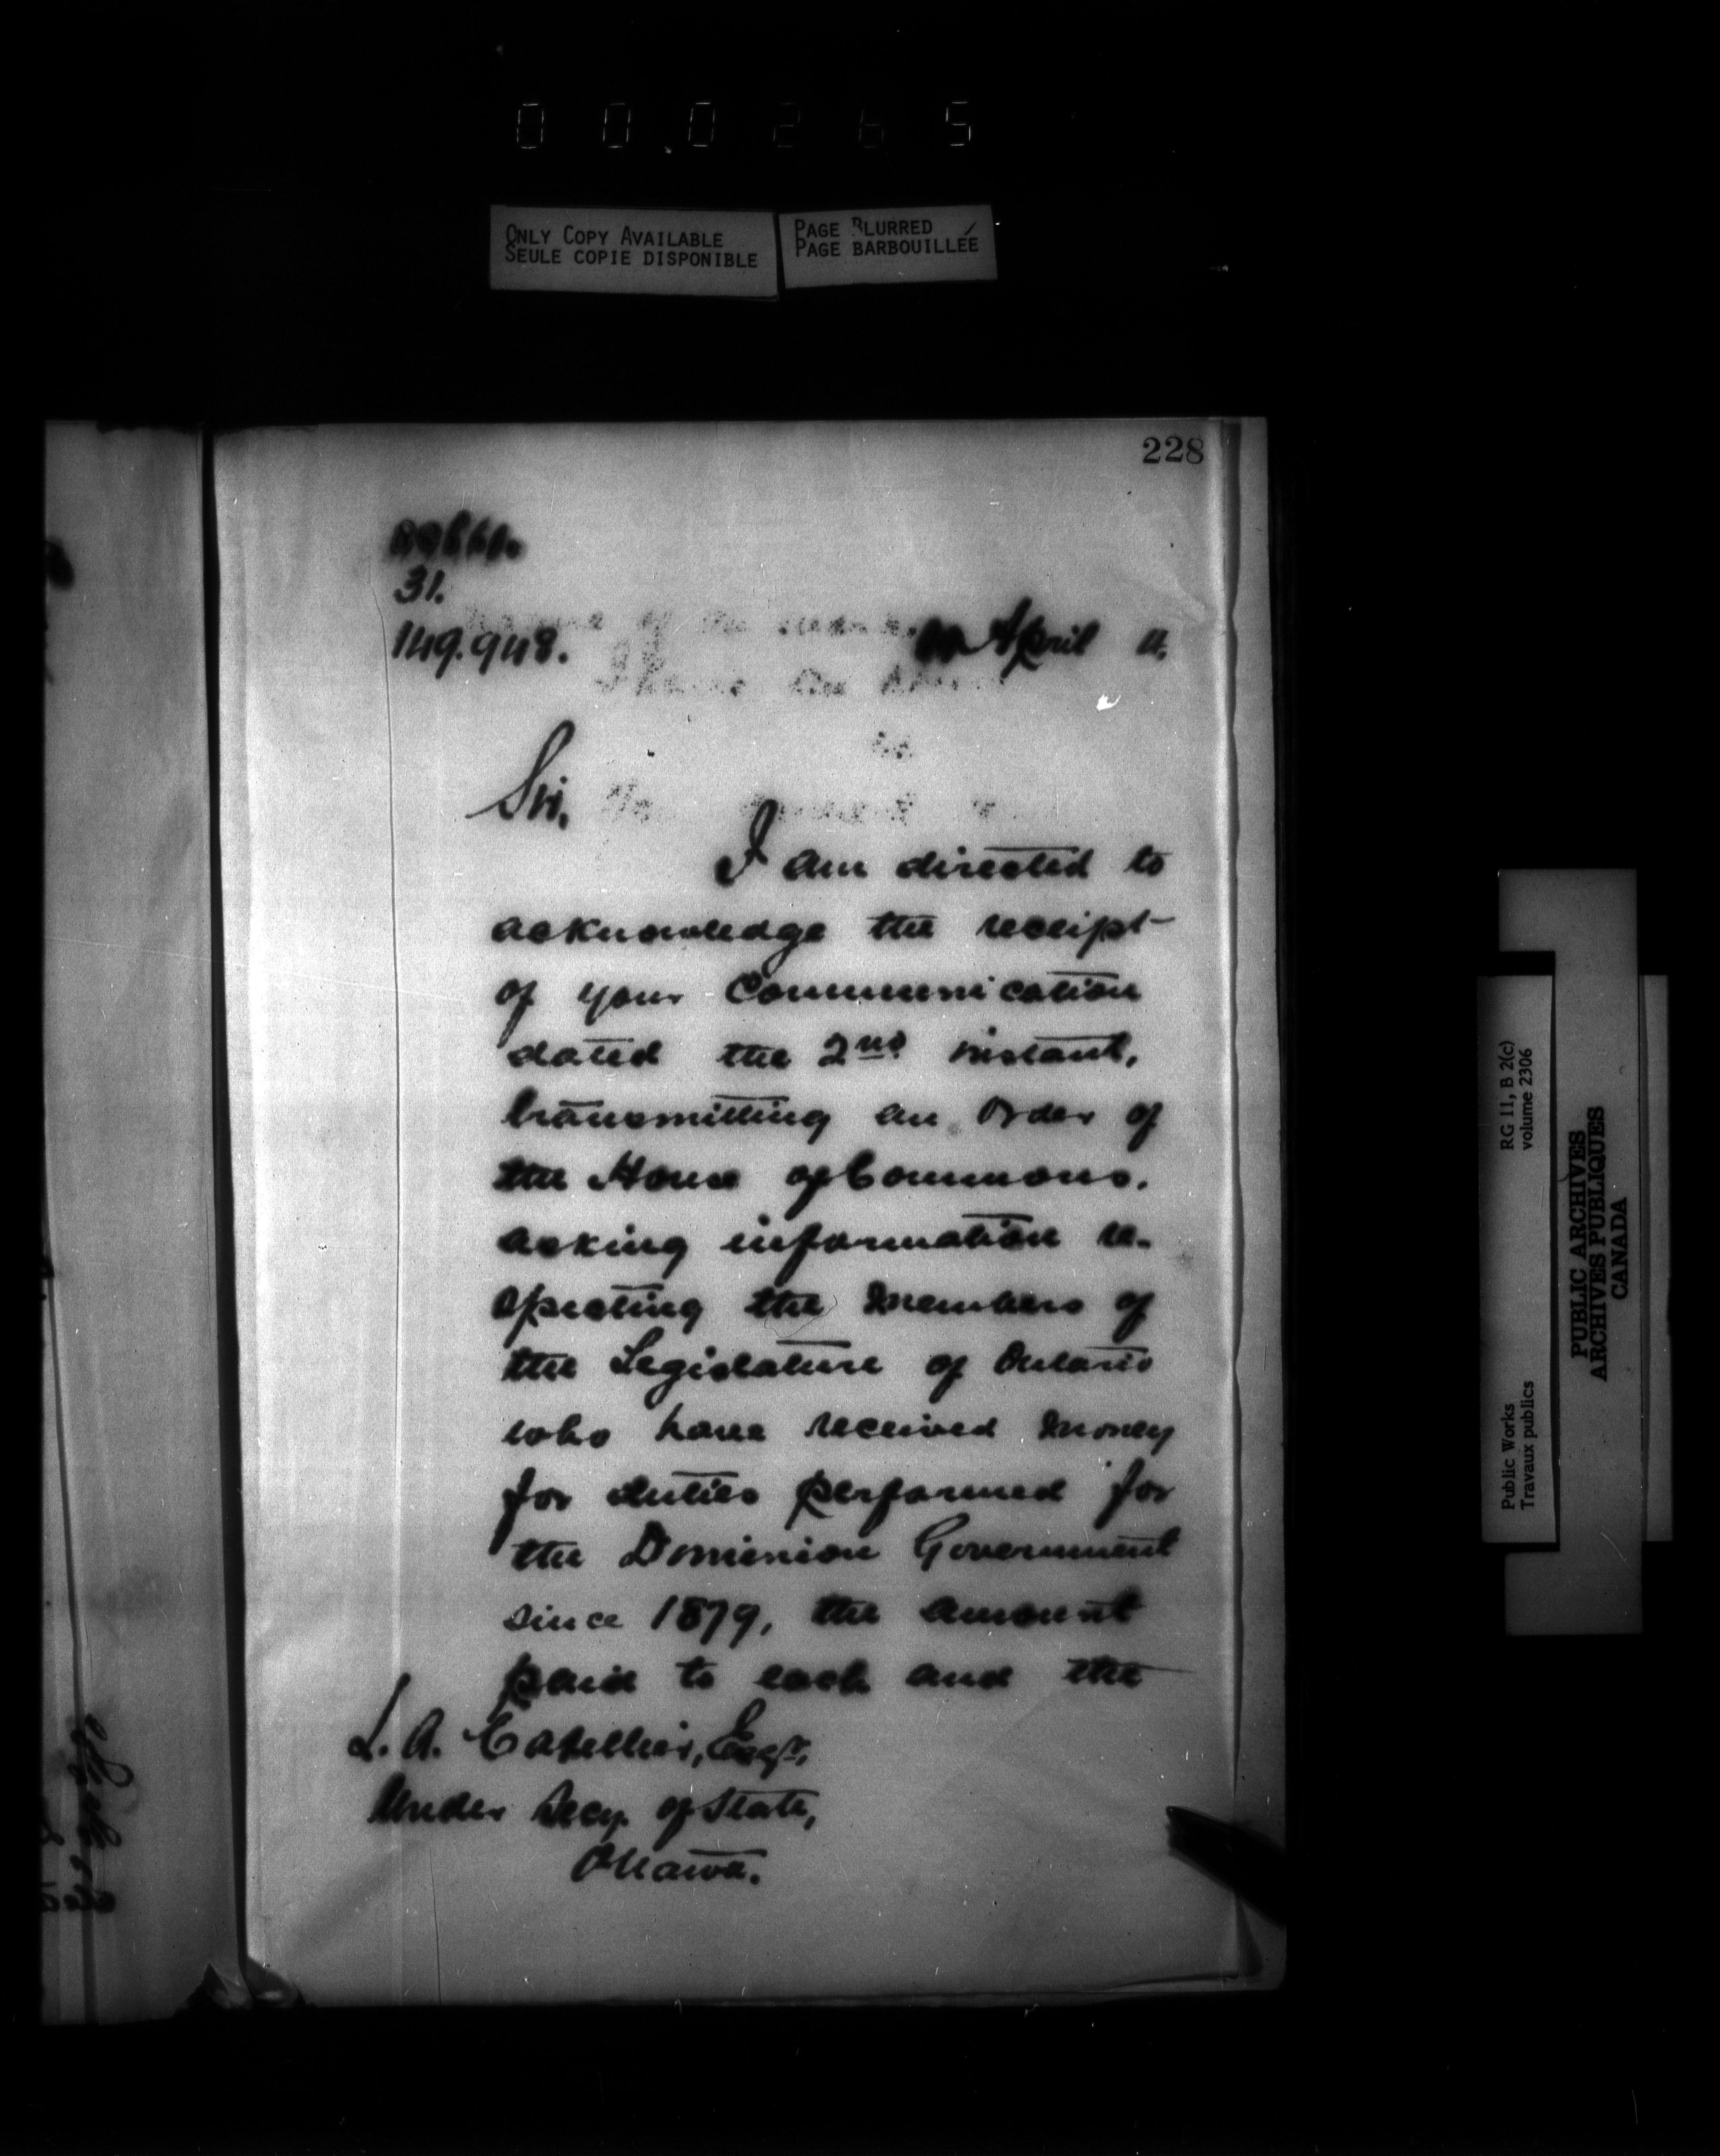 000265
ONLY COPY AVAILABLE
SEULE COPIE DISPONIBLE
PAGE BLURRED
PAGE BARBOUILLÉE
228
31.
149.948.
April
Sir,
I am directed to
acknowledge the receipt
of your Communication
dated the 2nd instant,
transmitting an Order of
the House of Commons.
asking information re-
specting the Members of
the Legislature of Ontario
who have received money
for duties performed for
the Dominion Government
since 1879, the amount
paid to each and the
L. A. Catellier, Esqr,
Under Secy. of State,
Ottawa.
RG 11, B 2(c)
volume 2306
Public Works
Travaux publics
PUBLIC ARCHIVES
ARCHIVES PUBLIQUES
CANADA